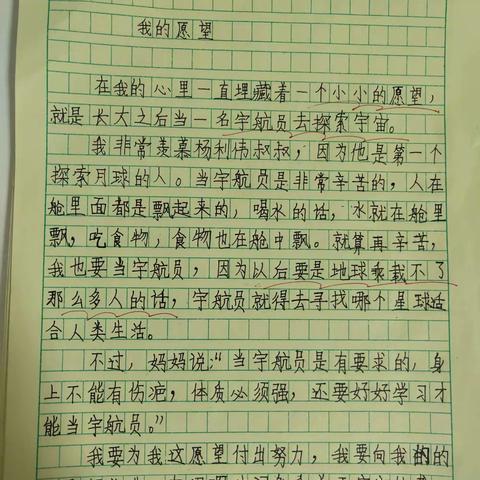 我的愿望
在我的心里一直埋藏着一个小小的愿望，
就是长大之后当一名宇航员去探索宇宙。
我非常羡慕杨利伟叔叔，因为他是第一个
探索月球的人。当宇航员是非常辛苦的，人在
舱里面都是飘起来的，喝水的话，水就在舱里
飘，吃食物，食物也在舱中飘。就算再辛苦，
我也要当宇航员，因为以后要是地球乘载不了
那么多人的话，宇航员就得去寻找哪个星球适
合人类生活。
不过，妈妈说：“当宇航员是有要求的，身
上不能有伤疤，体质必须强，还要好好学习才
能当宇航员。”
我要为我这愿望付出努力，我要向我的